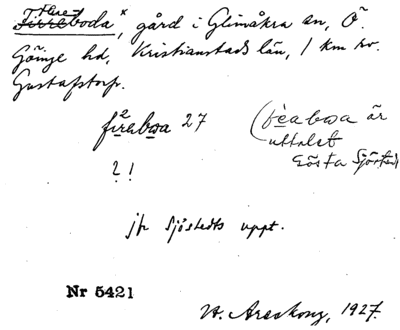 Threboda x, gård i Glimåkra sn, Ö.
Göinge hd, Kristianstads län, 1 km nv.
Gustafstorp.
firabωa 27
(fèabωa är
uttalet
Gösta Sjöstedt
?!
jfr Sjöstedts uppt.
Nr 5421
H. Areskoug, 1927.